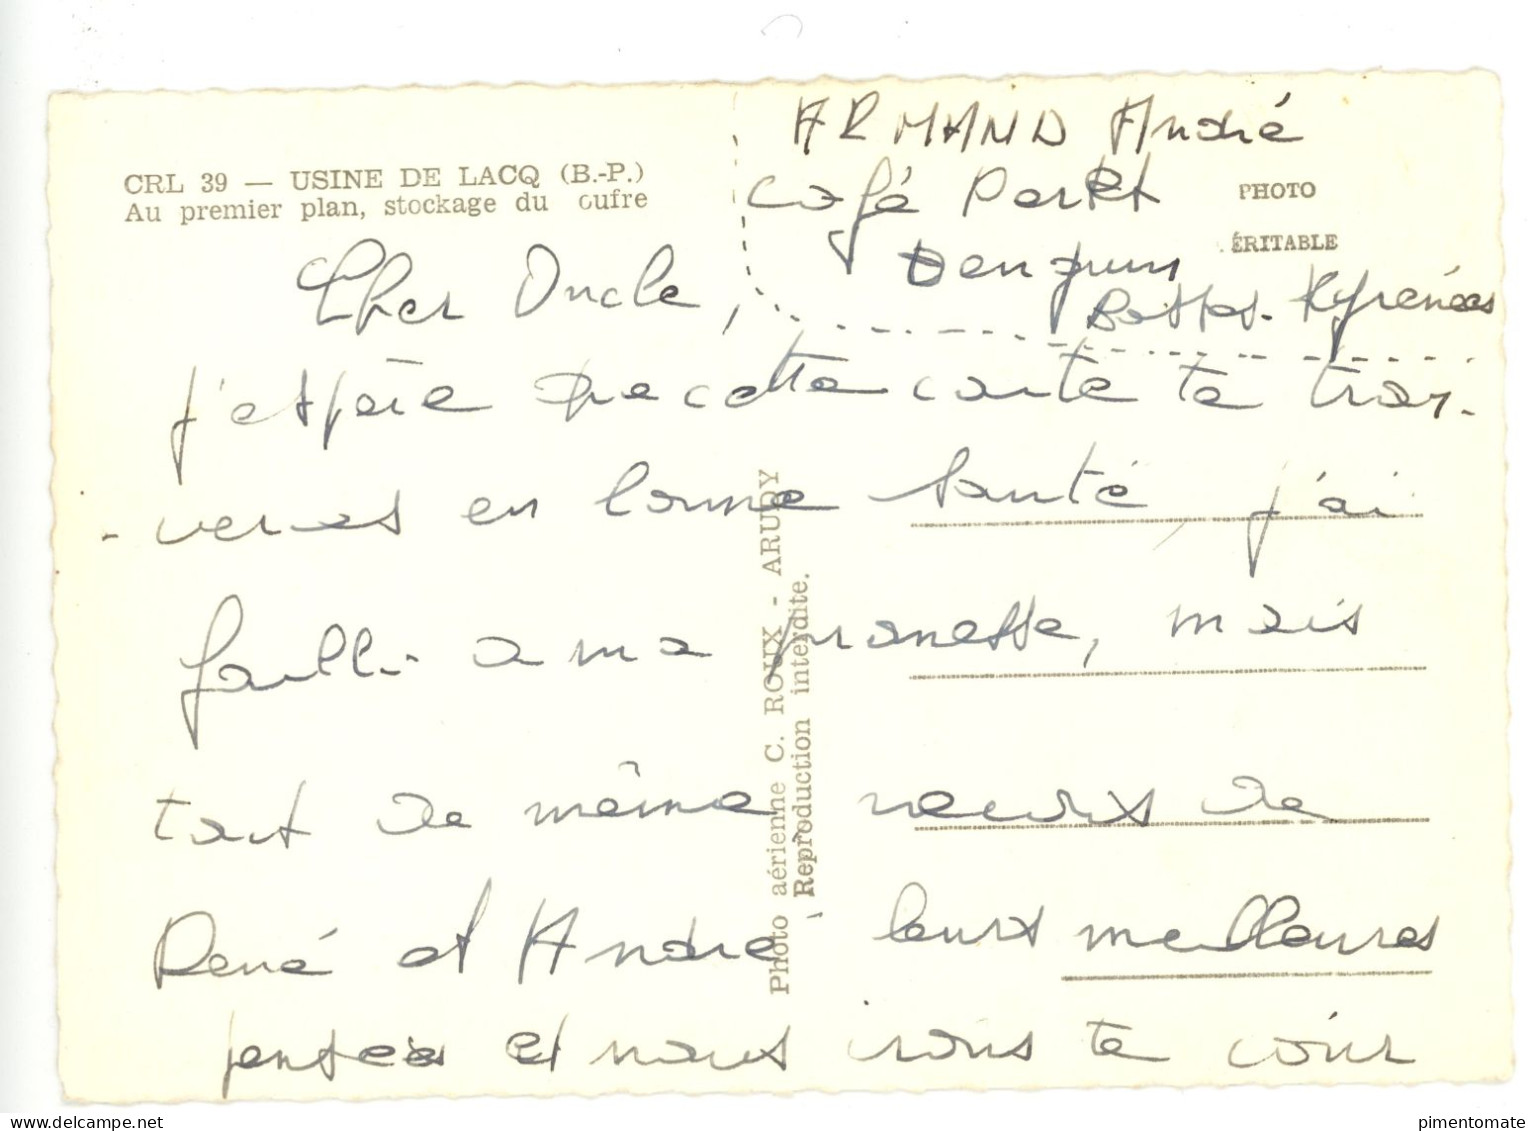 ARMAND André
CRL 39 — USINE DE LACQ (B.-P.)
Au premier plan, stockage du oufre
Café
PHOTO
ÉRITABLE
Denguin
Basses-Pyrénées
Cher Oncle,
j'espère que cette carte te trou-
-veras en bonne santé, j'ai
failli a ma promesse, mais
tout de même recois de
René et Andre leurs meilleures
pensées et nous irons te voir
Photo aérienne C. ROUX - ARUDY
Reproduction interdite.
pimentomate